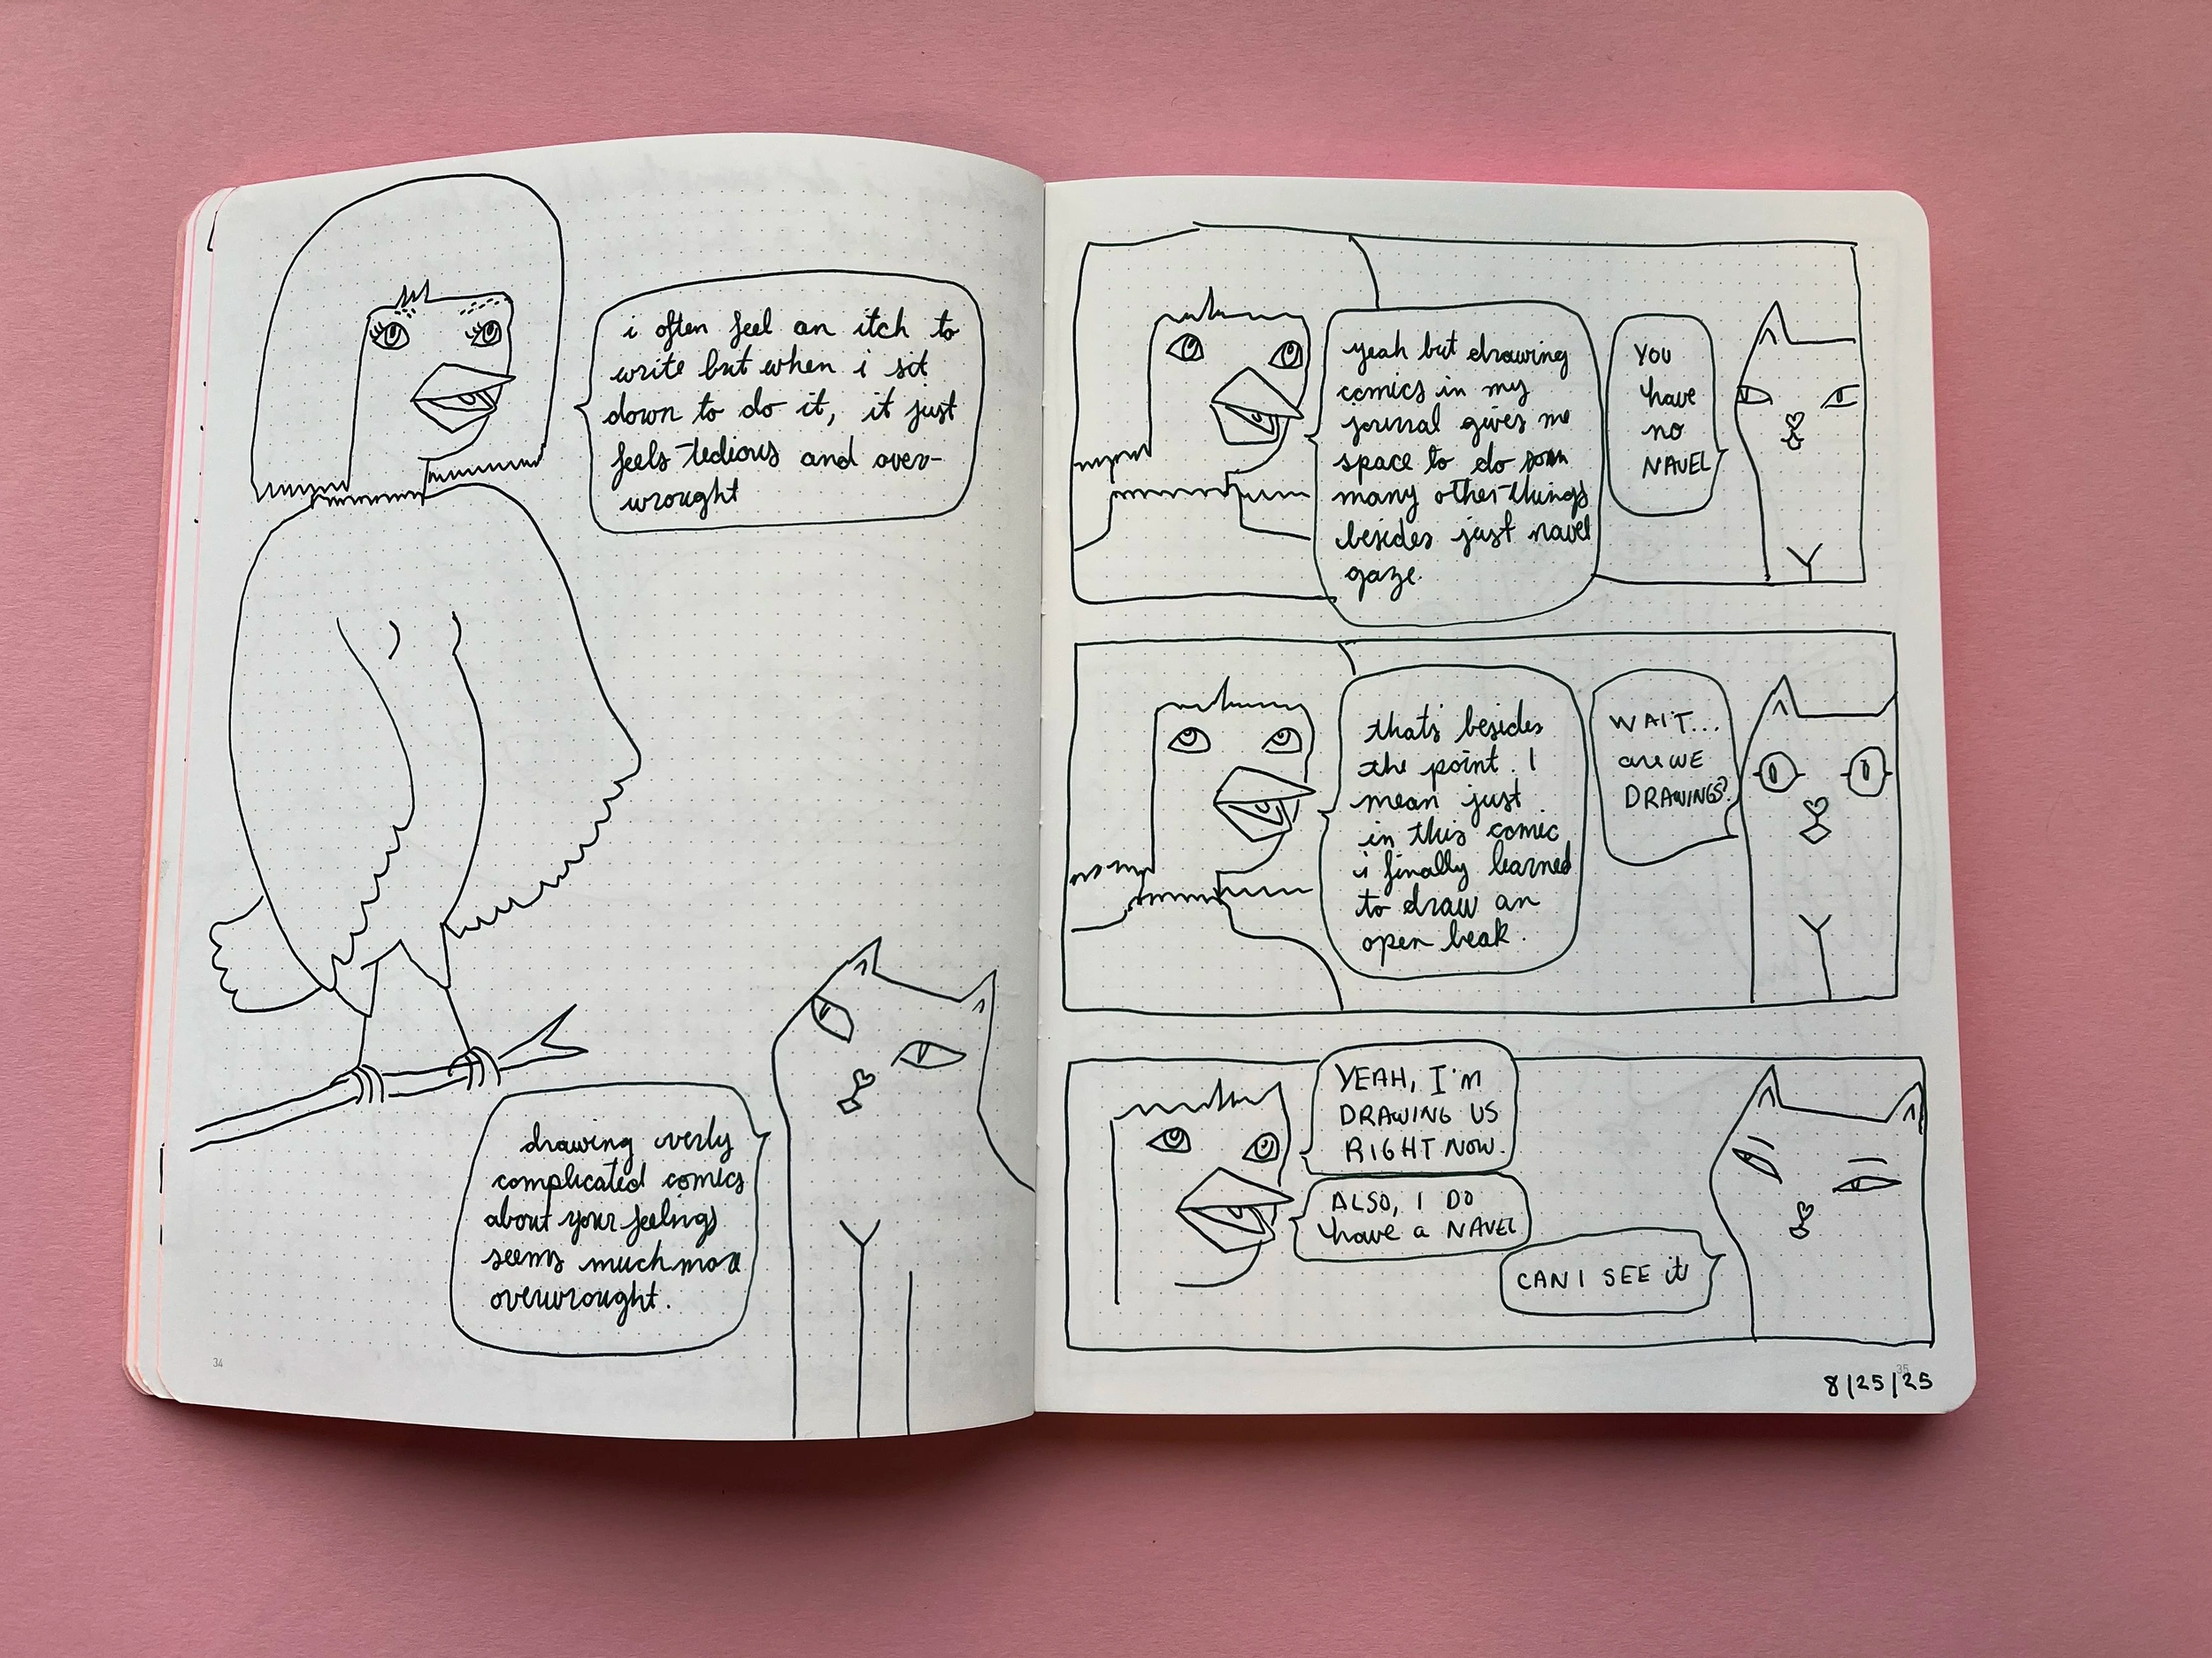 i often feel an itch to
write but when i sit
down to do it, it just
feels tedious and over-
wrought
drawing overly
complicated comics
about your feelings
seems much more
overwrought.
34
yeah but drawing
comics in my
journal gives me
space to do so
many other things
besides just navel
gaze.
YOU
have
no
NAVEL
that's besides
the point. I
mean just
in this comic
i finally learned
to draw an
open beak.
WAIT...
are WE
DRAWINGS?
YEAH, I'M
DRAWING US
RIGHT NOW.
ALSO, I DO
have a NAVEL
CAN I SEE it
35
8/25/25